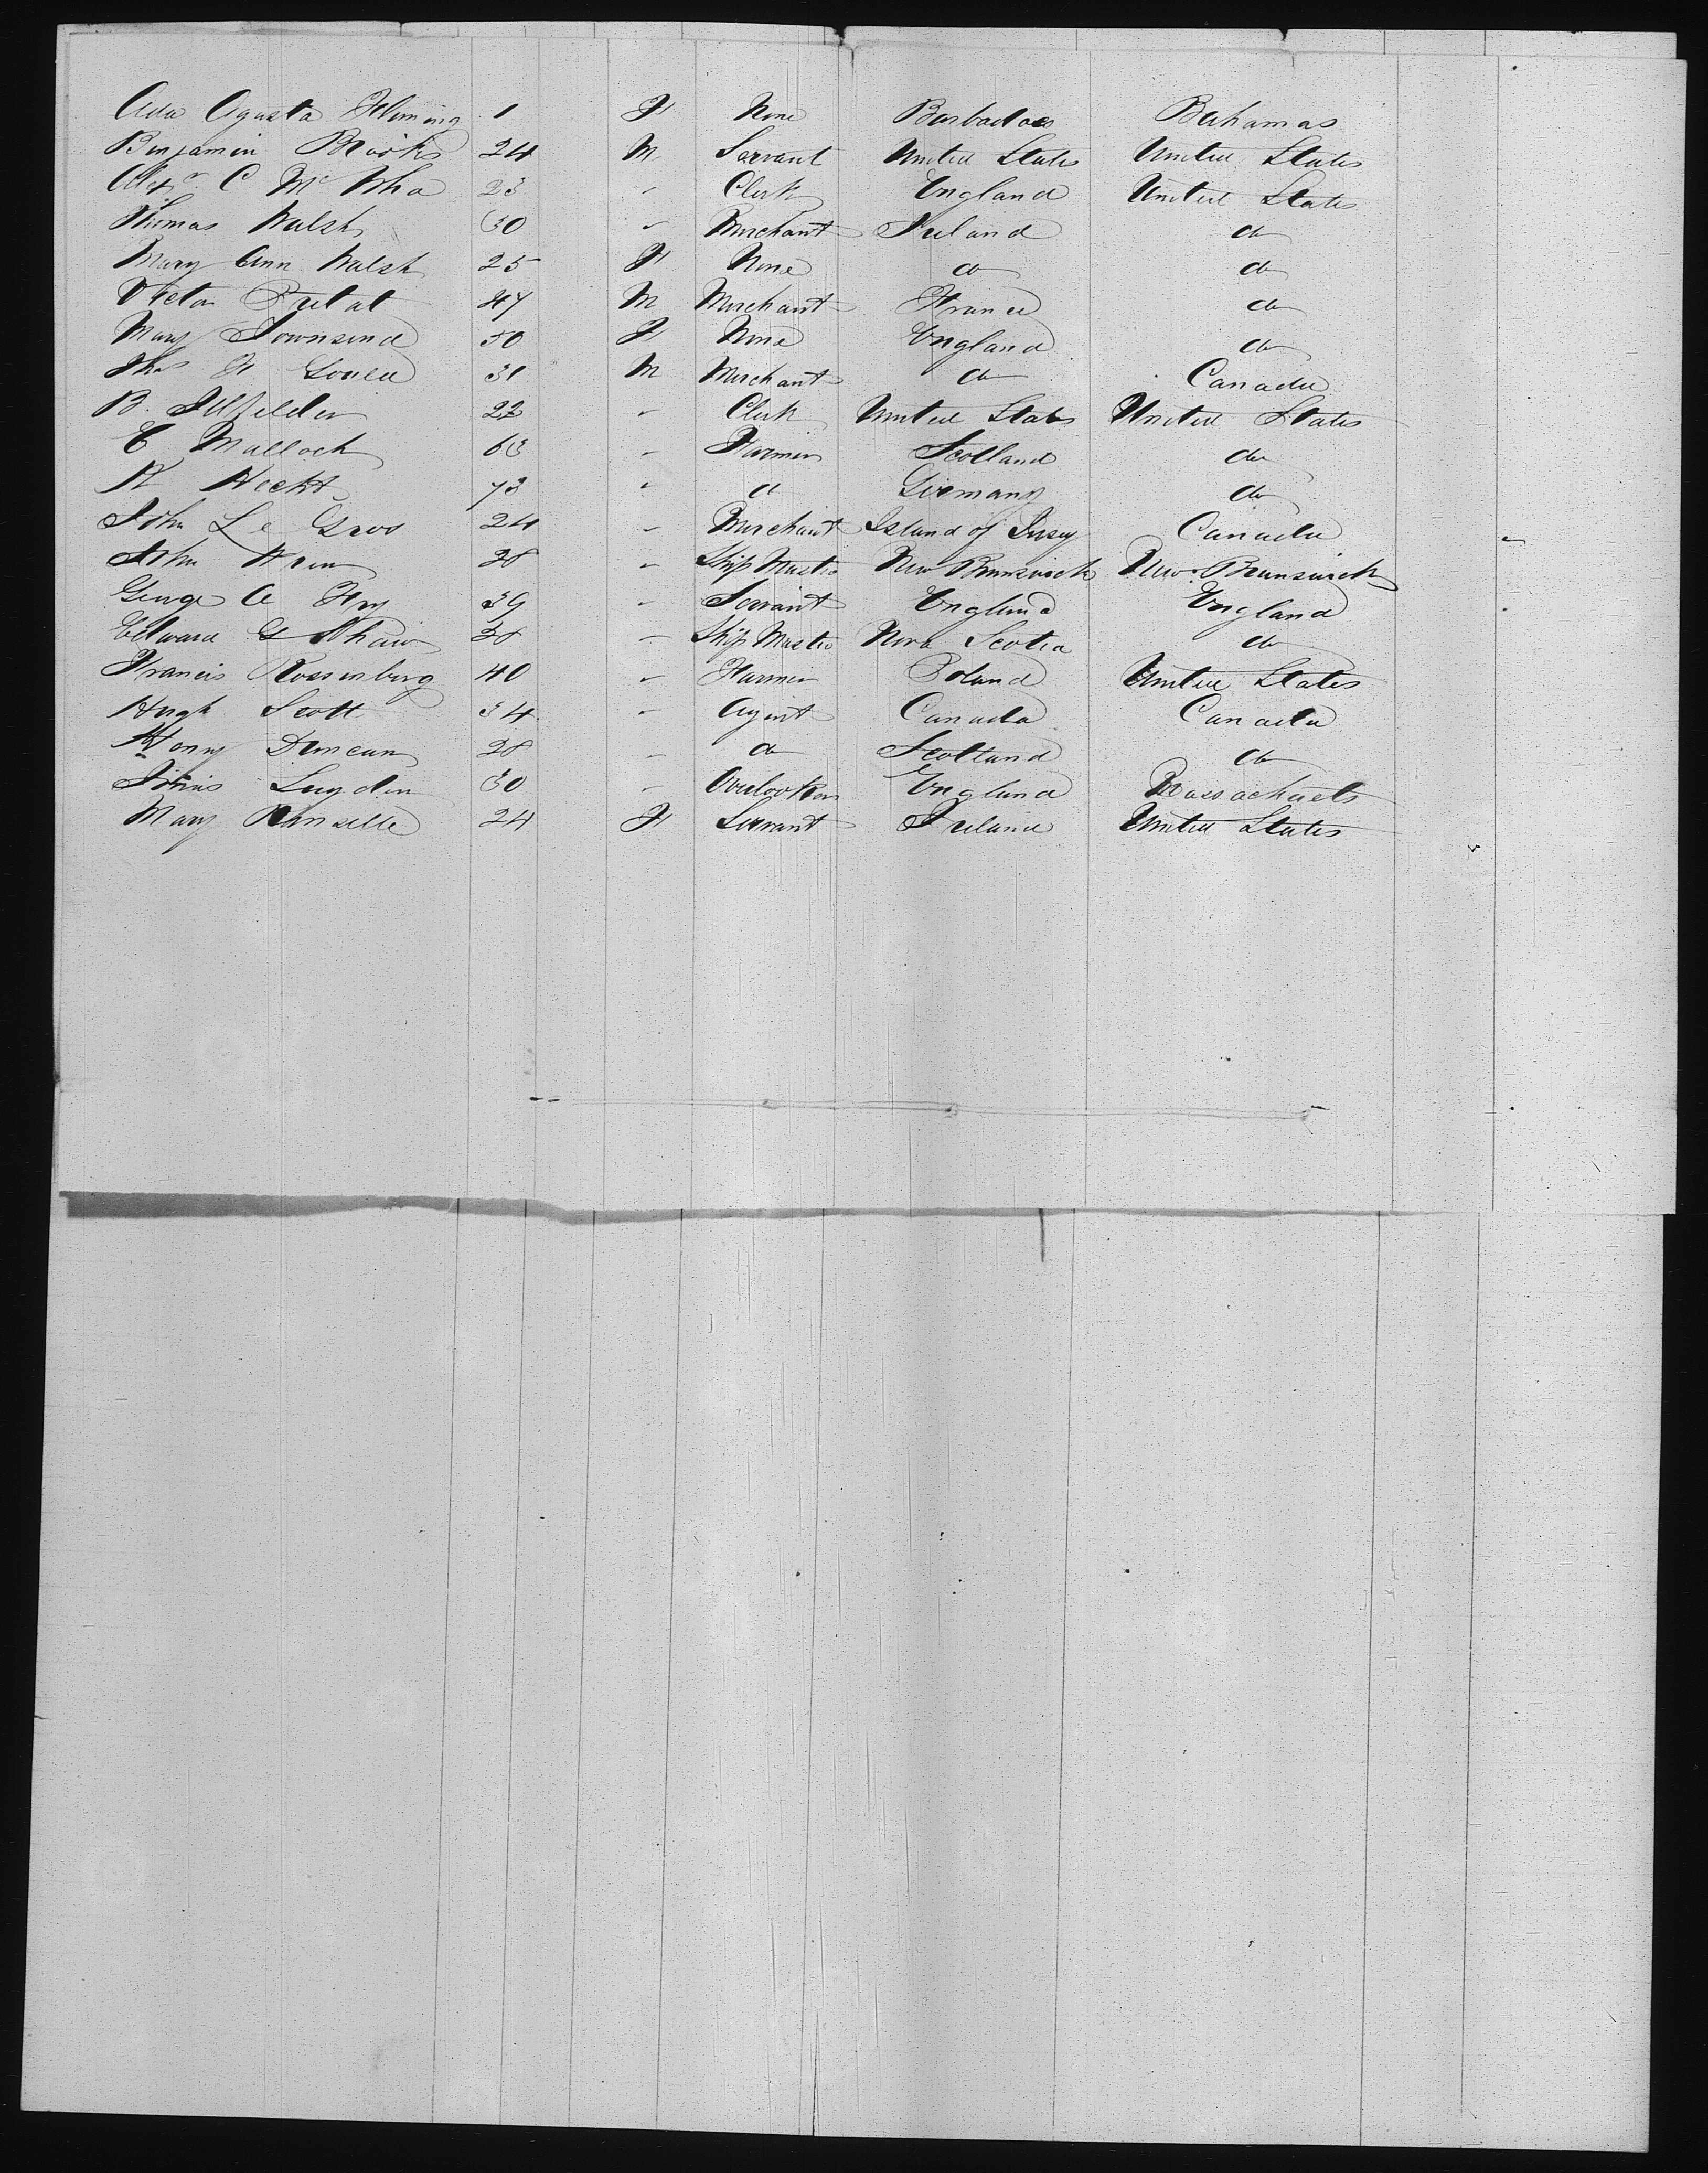 Ada Agusta Fleming 1 F None Barbadoes Bahamas
Benjamin Brooks 24 M Servant United States United States
Alexr C McWha 23 " Clerk England United States
Thomas Walsh 30 " Merchant Ireland do
Mary Ann Walsh 25 F None do do
Victor Pretat 47 M Merchant France do
Mary Townsend 50 F None England do
Thos F 31 M Merchant do Canada
B. Ilfelder 22 " Clerk United States United States
E Malloch 63 " Farmer Scotland do
H Hecht 73 " d Germany do
John Le Gros 24 " Merchant Island of Jersey Canada
John 28 " Ship Master New Brunswick New Brunswick
George A Fry 39 " Servant England England
Edward G Shaw 38 " Ship Master Nova Scotia do
Francis Rossenberg 40 " Farmer Poland United States
Hugh Scott 34 " Agent Canada Canada
Henry Duncan 28 " do Scotland do
30 " Overlooker England Massachuets
Mary 24 F Servant Ireland United States